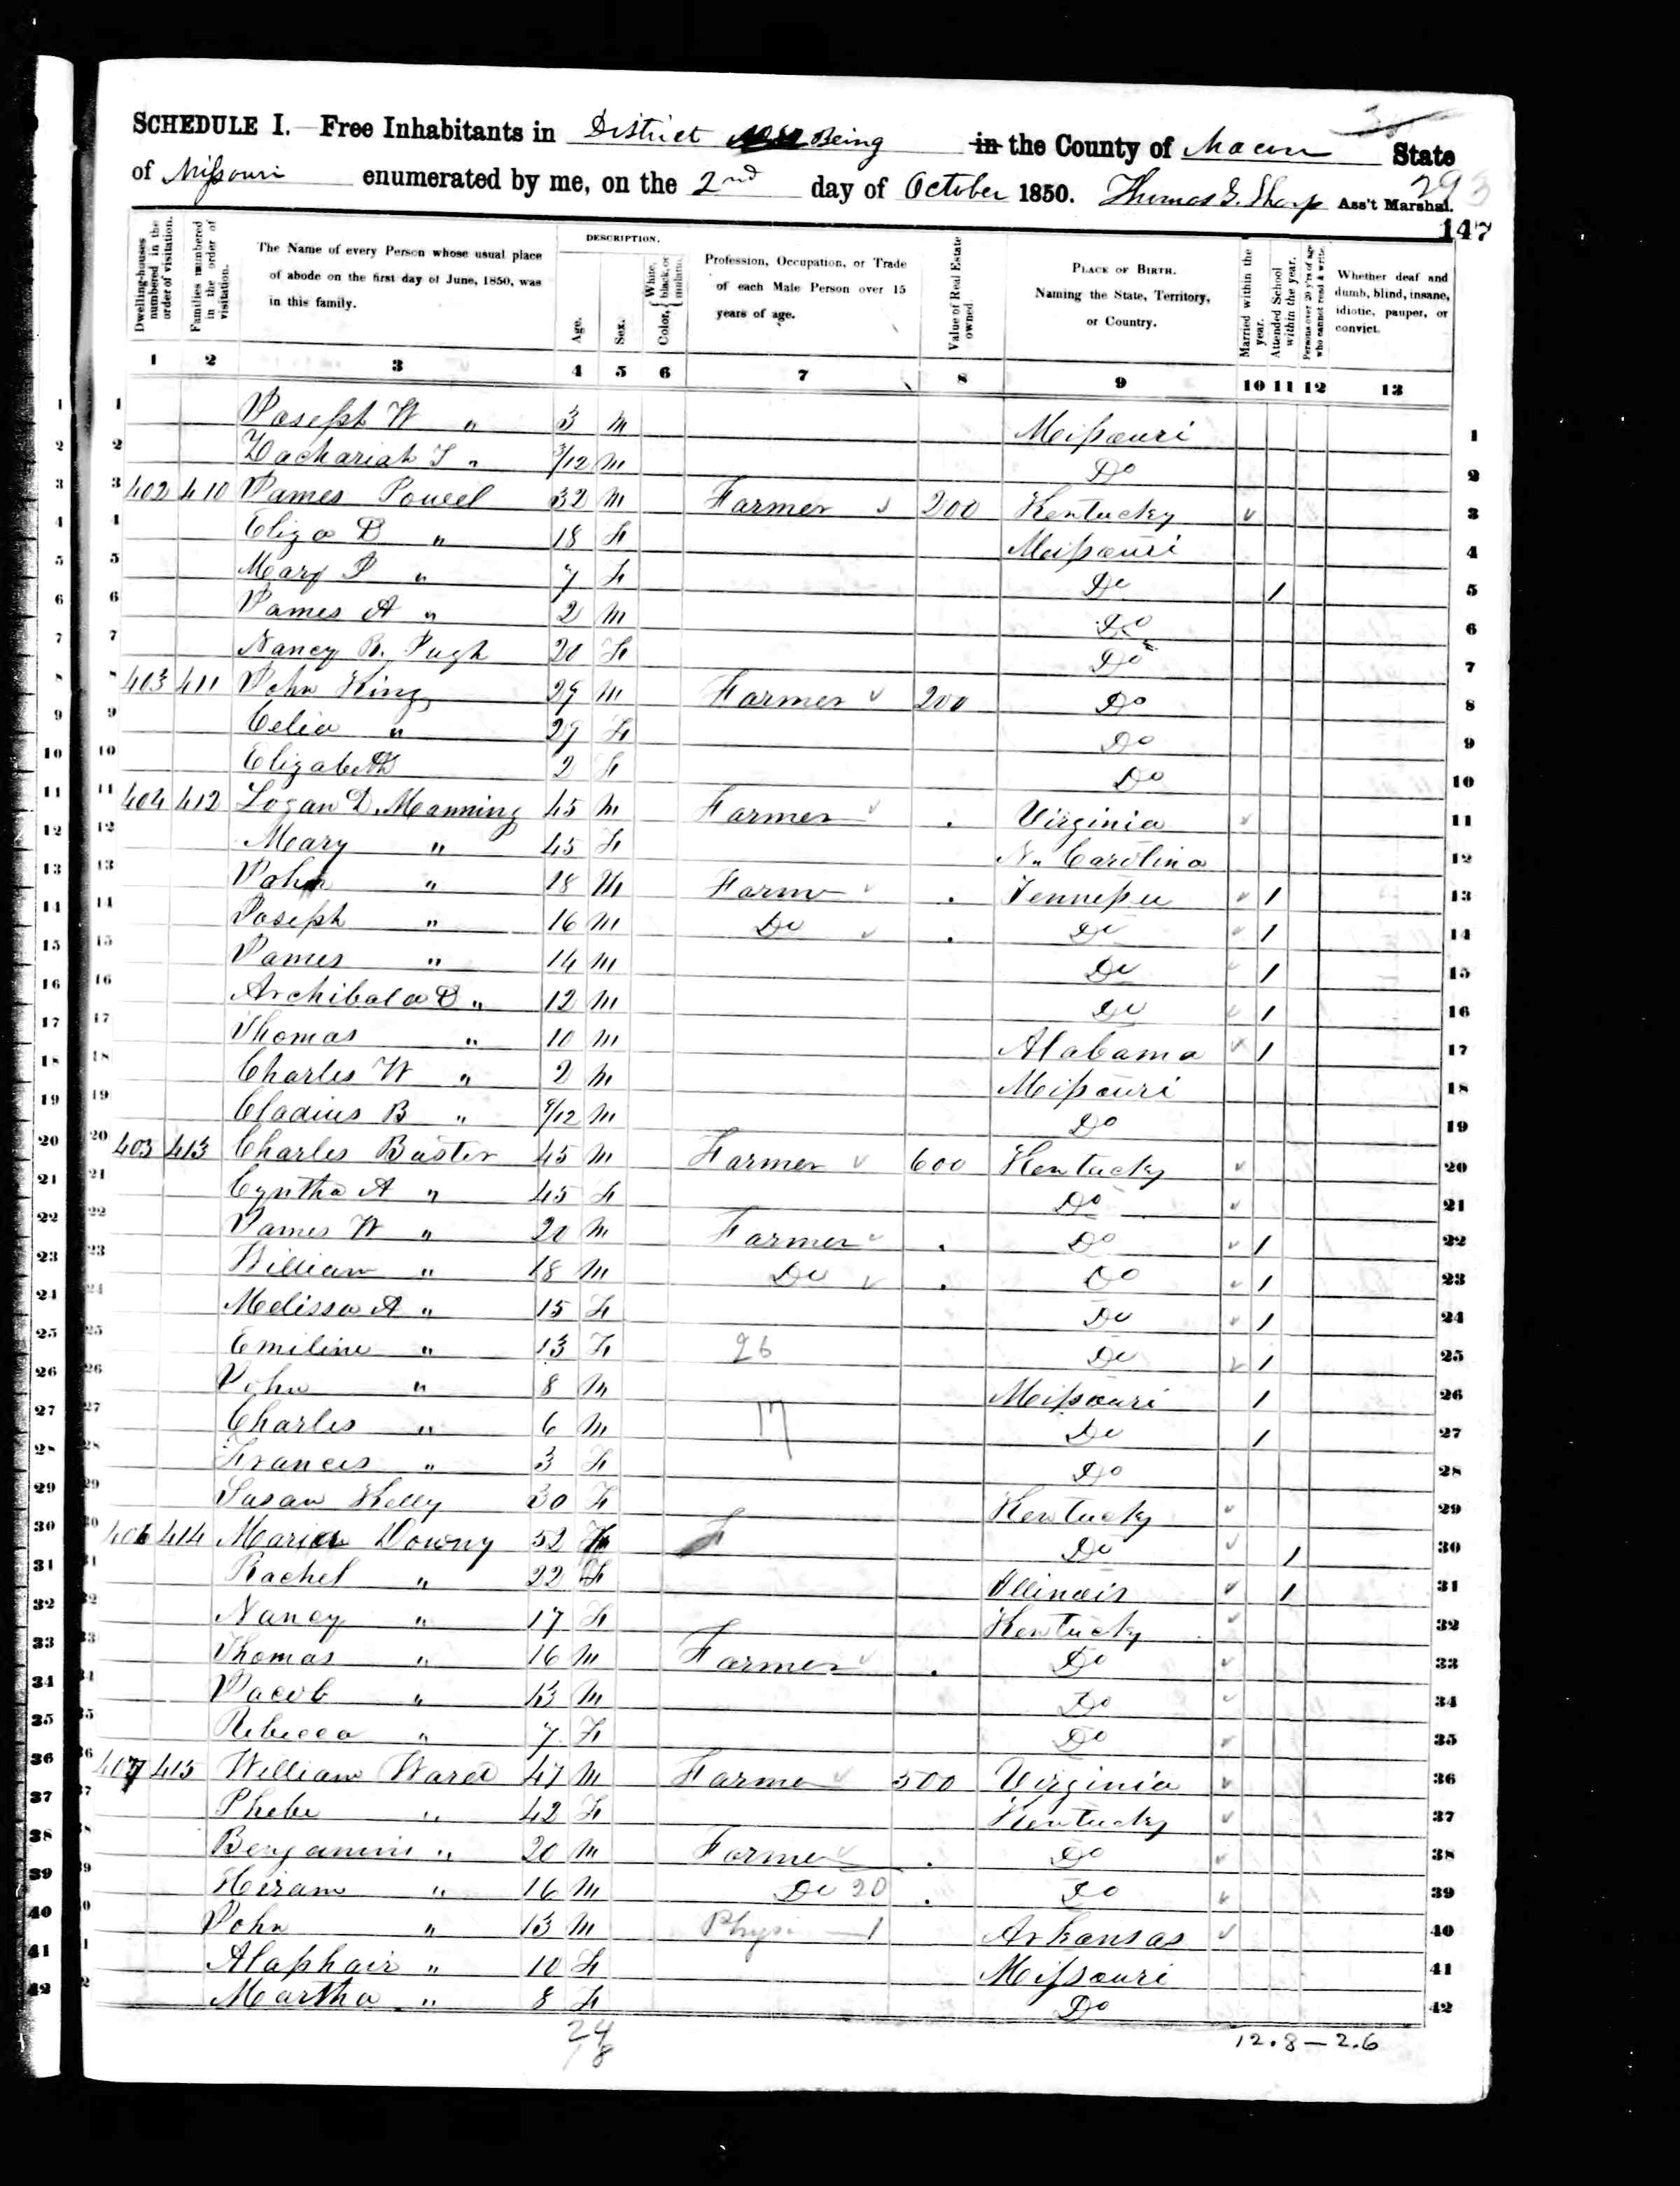 SCHEDULE I. Free Inhabitants in District Being in the County of Macon State
of Missouri enumerated by me, on the 2nd day of October 1850. Thomas G. Sharp Ass't Marshal.
293
147
Dwelling-houses numbered in the order of visitation. Families numbered in the order of visitation. The Name of every Person whose usual place of abode on the first day of June, 1850, was in this family. DESCRIPTION. Age. Sex. Color, White, black, or mulatto. Profession, Occupation, or Trade of each Male Person over 15 years of age. Value of Real Estate owned. PLACE OF BIRTH. Naming the State, Territory, or Country. Married within the year. Attended School within the year. Persons over 20 y'rs of age who cannot read & write. Whether deaf and dumb, blind, insane, idiotic, pauper, or convict.
1 2 3 4 5 6 7 8 9 10 11 12 13
1 Joseph W " 3 M Missouri 1
2 Zachariah T " 3/12 M Do 2
3 402 410 James Powel 32 M Farmer 200 Kentucky 3
4 Eliza D " 18 F Missouri 4
5 Mary J " 7 F Do 1 5
6 James A " 2 M Do 6
7 Nancy B. Pugh 20 F Do 7
8 403 411 John King 29 M Farmer 200 Do 8
9 Celia " 29 F Do 9
10 Elizabeth 2 F Do 10
11 404 412 Logan D. Manning 45 M Farmer . Virginia 11
12 Mary " 45 F N. Carolina 12
13 John " 18 M Farmer . Tennessee 1 13
14 Joseph " 16 M Do . Do 1 14
15 James " 14 M Do 1 15
16 Archibald D " 12 M Do 1 16
17 Thomas " 10 M Alabama 1 17
18 Charles W " 2 M Missouri 18
19 Cladius B " 9/12 M Do 19
20 403 413 Charles Buster 45 M Farmer 600 Kentucky 20
21 Cyntha A " 45 F Do 21
22 James W " 20 M Farmer . Do 1 22
23 William " 18 M Do . Do 1 23
24 Melissa A " 15 F Do 1 24
25 Emiline " 13 F 26 Do 1 25
26 John " 8 M Missouri 1 26
27 Charles " 6 M 17 Do 1 27
28 Frances " 3 F Do 28
29 Susan Kelly 30 F Kentucky 29
30 406 414 Maria Downy 52 F Do 1 30
31 Rachel " 22 F Illinois 1 31
32 Nancy " 17 F Kentucky 32
33 Thomas " 16 M Farmer . Do 33
34 Jacob " 13 M Do 34
35 Rebecca " 7 F Do 35
36 407 415 William Ware 47 M Farmer 500 Virginia 36
37 Phebe " 42 F Kentucky 37
38 Benjamin " 20 M Farmer . Do 38
39 Hiram " 16 M Do 20 . Do 39
40 John " 13 M Phys. 1 Arkansas 40
41 Alaphair " 10 F Missouri 41
42 Martha " 8 F Do 42
24
18
12.8 – 2.6